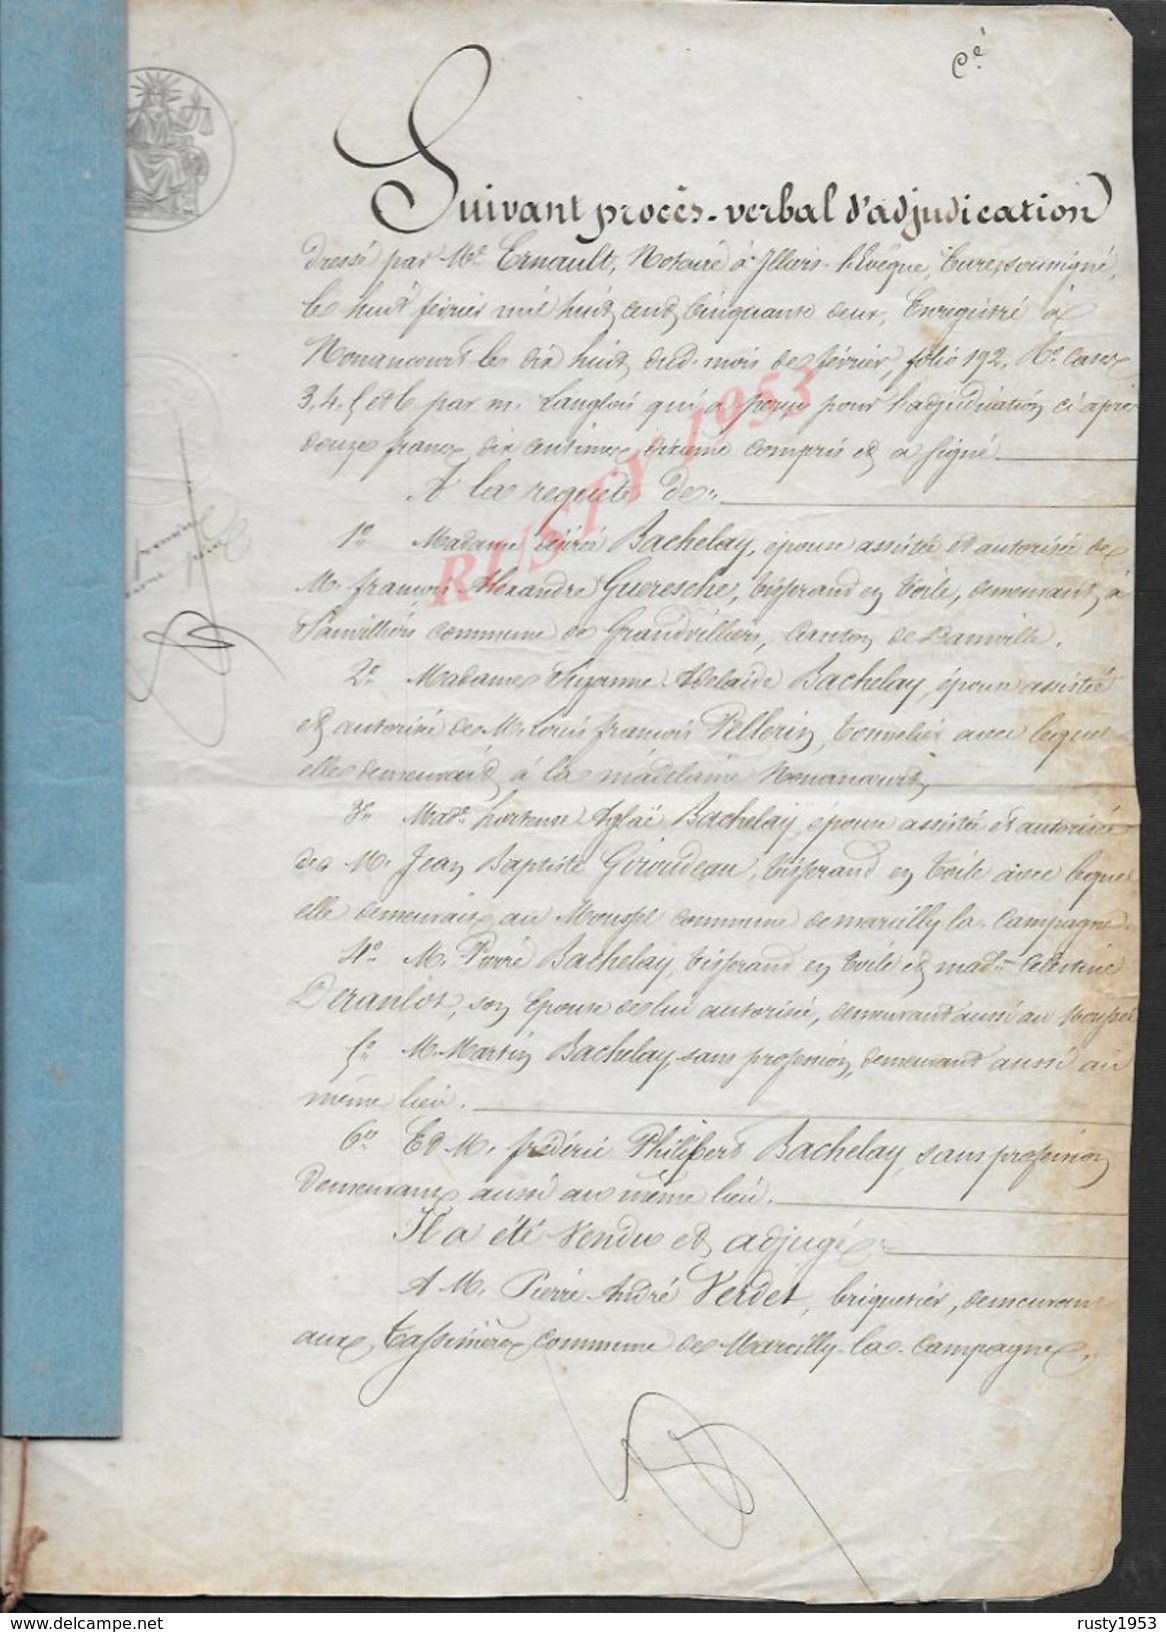 Cé
Suivant procès-verbal d'adjudication
Dressé par Me Ernault, Notaire à Illiers-l'Evêque, Eure, soussigné,
le huit février mil huit cent cinquante deux, Enregistré à
Nonancourt le dix huit dud. mois de février, folio 192, Ro Cases
3, 4, 5 et 6 par m. Langlois qui a perçu pour l'adjudication ci après
douze francs dix centimes dixième compris et a signé
A la requête de :
1o Madame Désirée Bachelay, épouse assistée et autorisée de
M. françois Alexandre Gueresche, tisserand en toile, demeurant à
Sainvilliers commune de Grandvilliers, Canton de Damville.
2o Madame Suzanne Adelaide Bachelay, épouse assistée
et autorisée de M. Louis françois Pellerin, tonnelier avec lequel
elle demeurait à la madelaine Nonancourt,
3o Made hortense Aglaé Bachelay, épouse assistée et autorisée
de M. Jean Baptiste Giroudeau, tisserand en toile avec lequel
elle demeurait au Moussel commune de marcilly la Campagne
4o M. Pierre Bachelay, tisserand en toile et made Celestine
Deranlot, son Epouse de lui autorisée, demeurant aussi au Moussel
5o M. Martin Bachelay, sans profession, demeurant aussi au
même lieu.
6o Et M. frédéric Philibert Bachelay, sans profession
demeurant aussi au même lieu.
Il a été vendu et adjugé
A M. Pierre André Verdet, briquetier, demeurant
aux commune de Marcilly-la-Campagne,
RUSTY 1953
delcampe.net
rusty1953